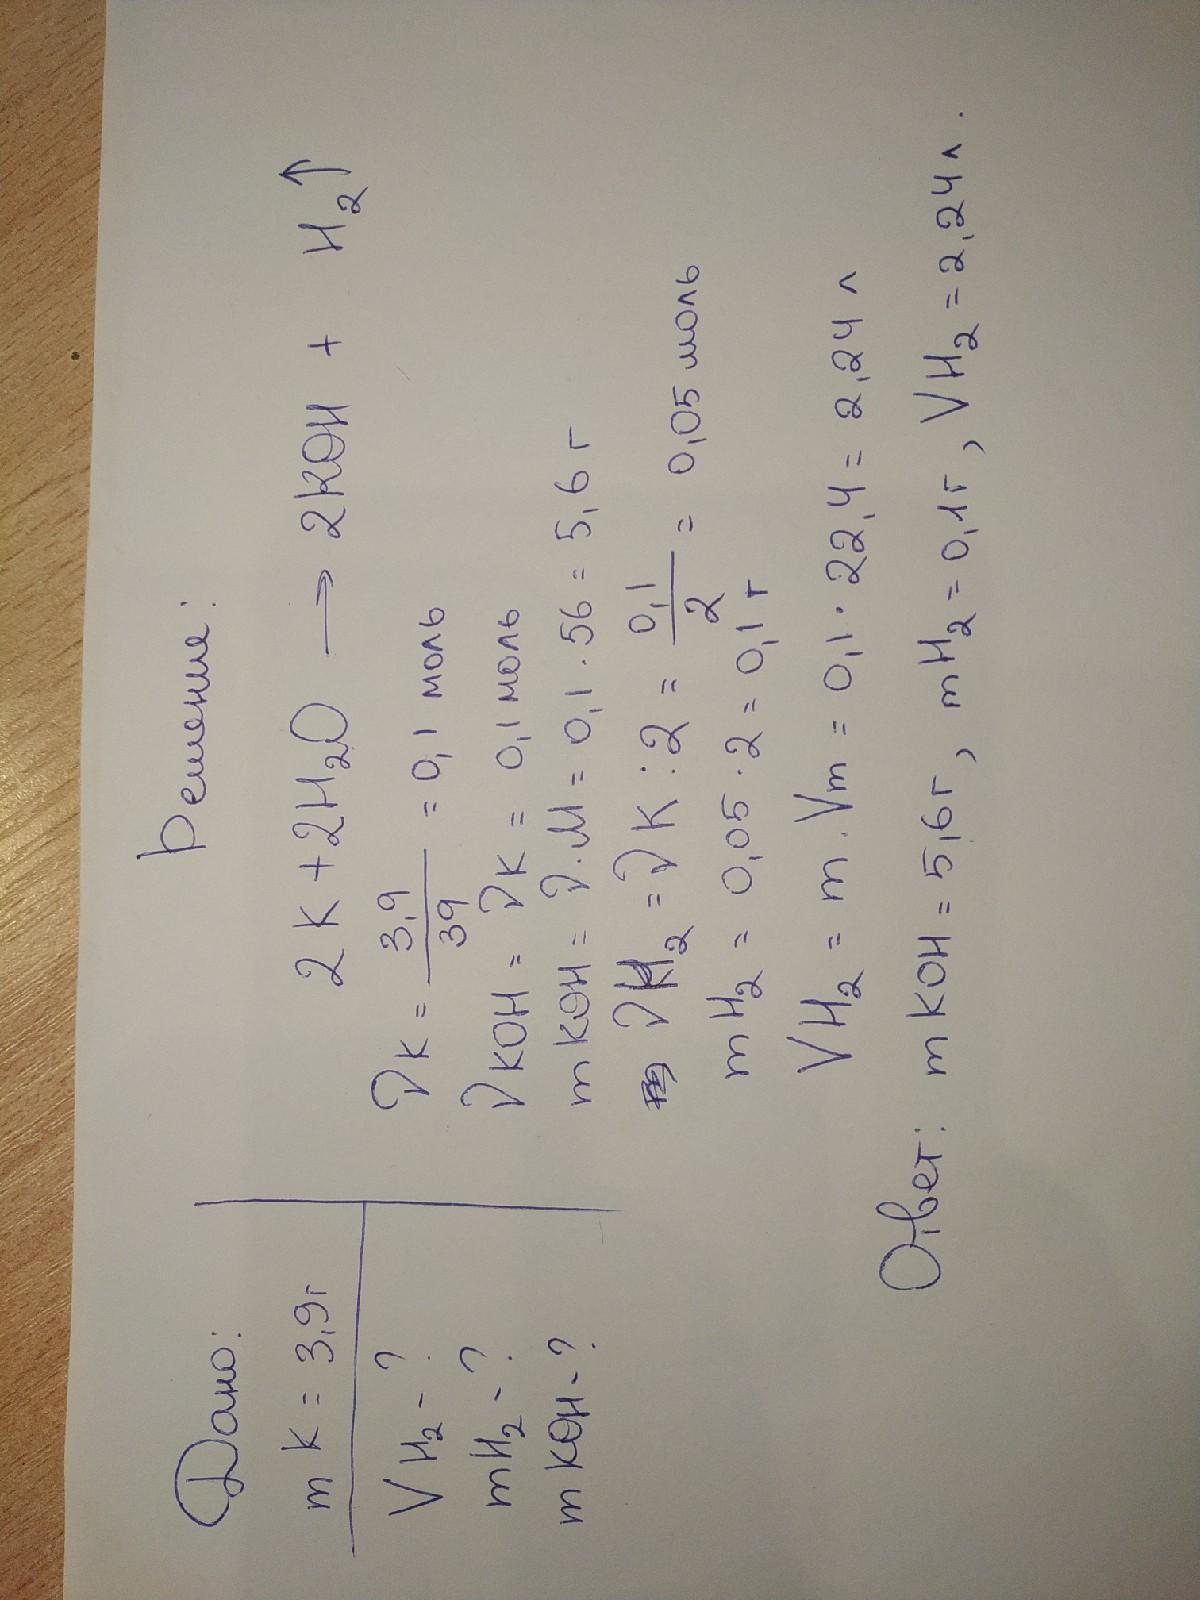 Дано:
m K = 3,9г
V H₂ - ?
m H₂ - ?
m KOH - ?
Решение:
2K + 2H₂O ⟶ 2KOH + H₂↑
νK = 3,9/39 = 0,1 моль
νKOH = νK = 0,1 моль
m KOH = ν·M = 0,1·56 = 5,6 г
νH₂ = νK : 2 = 0,1/2 = 0,05 моль
m H₂ = 0,05·2 = 0,1 г
VH₂ = m·Vm = 0,1·22,4 = 2,24 л
Ответ: m KOH = 5,6г, mH₂ = 0,1г, VH₂ = 2,24л.